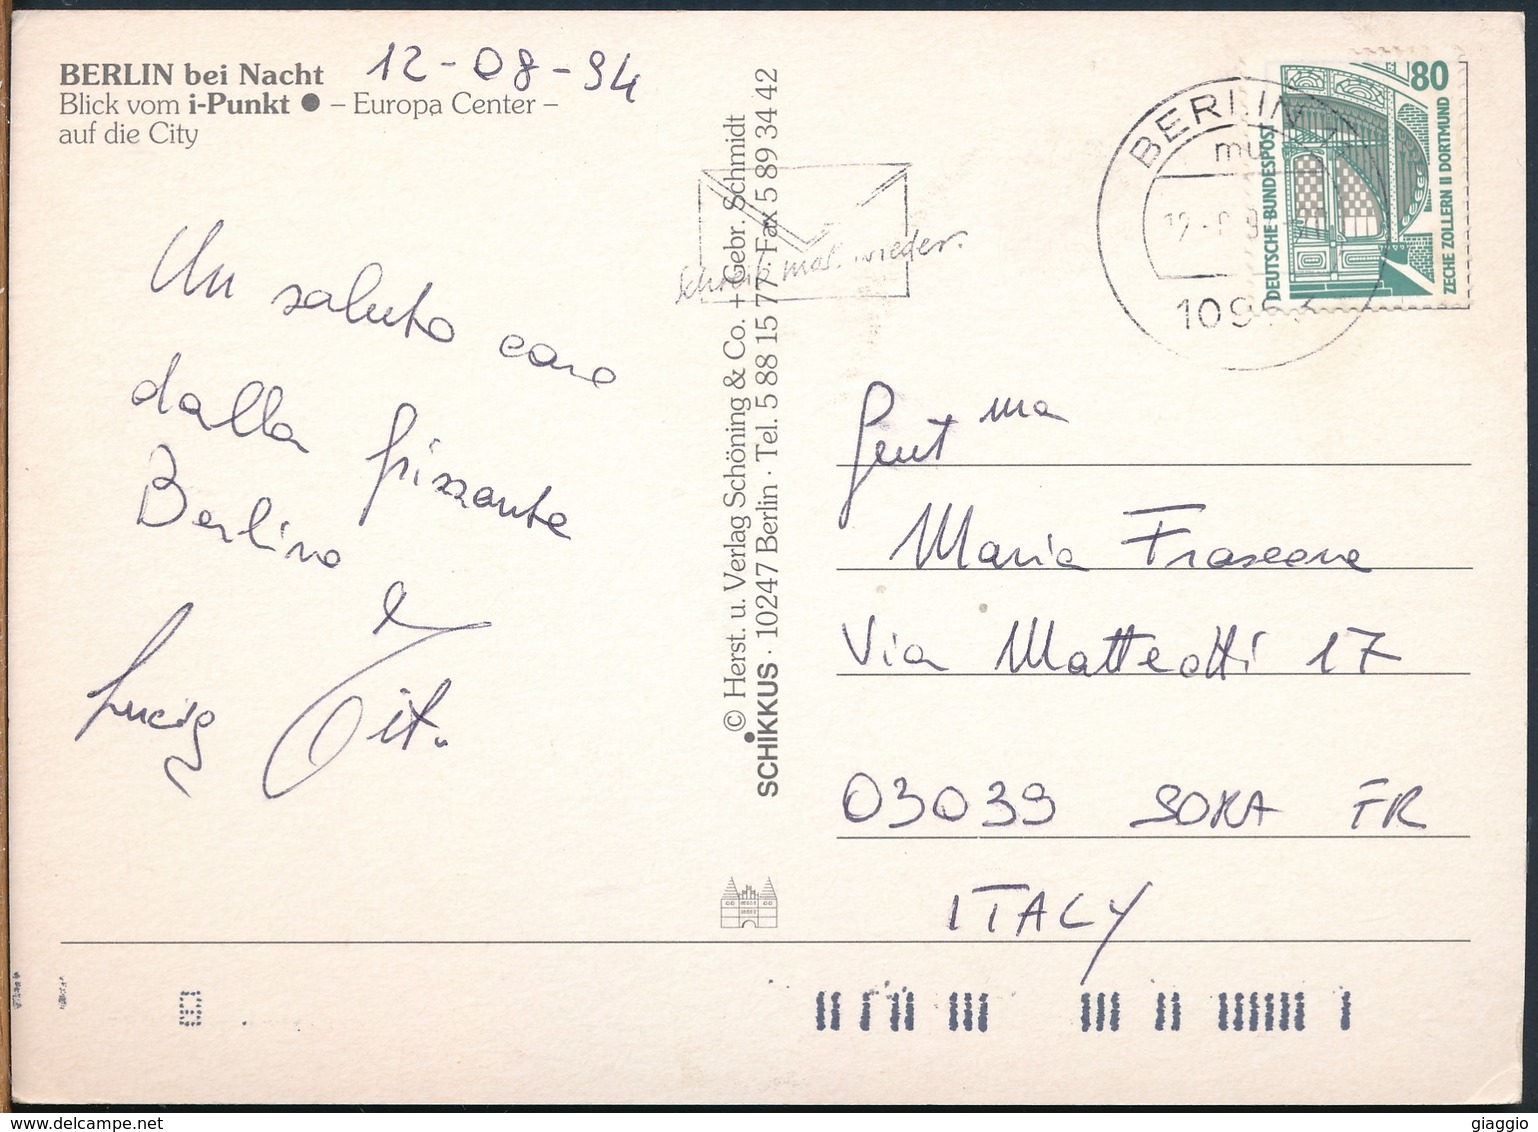 BERLIN bei Nacht
Blick vom i-Punkt ● – Europa Center –
auf die City
12-08-94
Un saluto caro
dalla frizzante
Berlino
© Herst. u. Verlag Schöning & Co. + Gebr. Schmidt
SCHIKKUS · 10247 Berlin · Tel. 5 88 15 77 · Fax 5 89 34 42
Schreib mal wieder.
BERLIN
80
DEUTSCHE BUNDESPOST
ZECHE ZOLLERN II DORTMUND
Gent ma
Maria
Via Matteotti 17
03039 SORA FR
ITALY
www.delcampe.net
giaggio